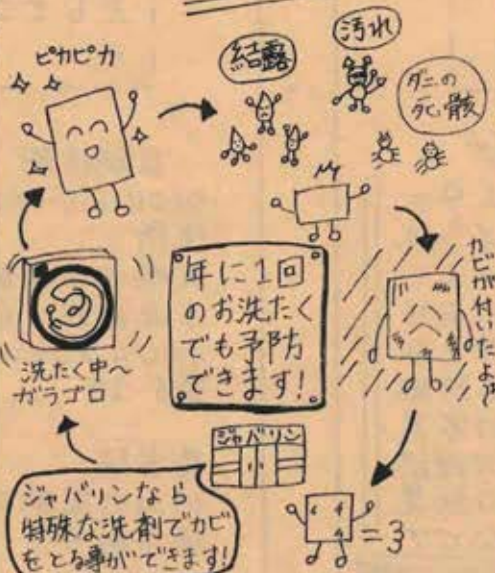 ピカピカ
結露
汚れ
ダニの
死骸
カビが付いたよぉ
年に1回
のお洗たく
でも予防
できます!
洗たく中~
ガラゴロ
ジャバリン
ジャバリンなら
特殊な洗剤でカビ
をとる事ができます!
=3